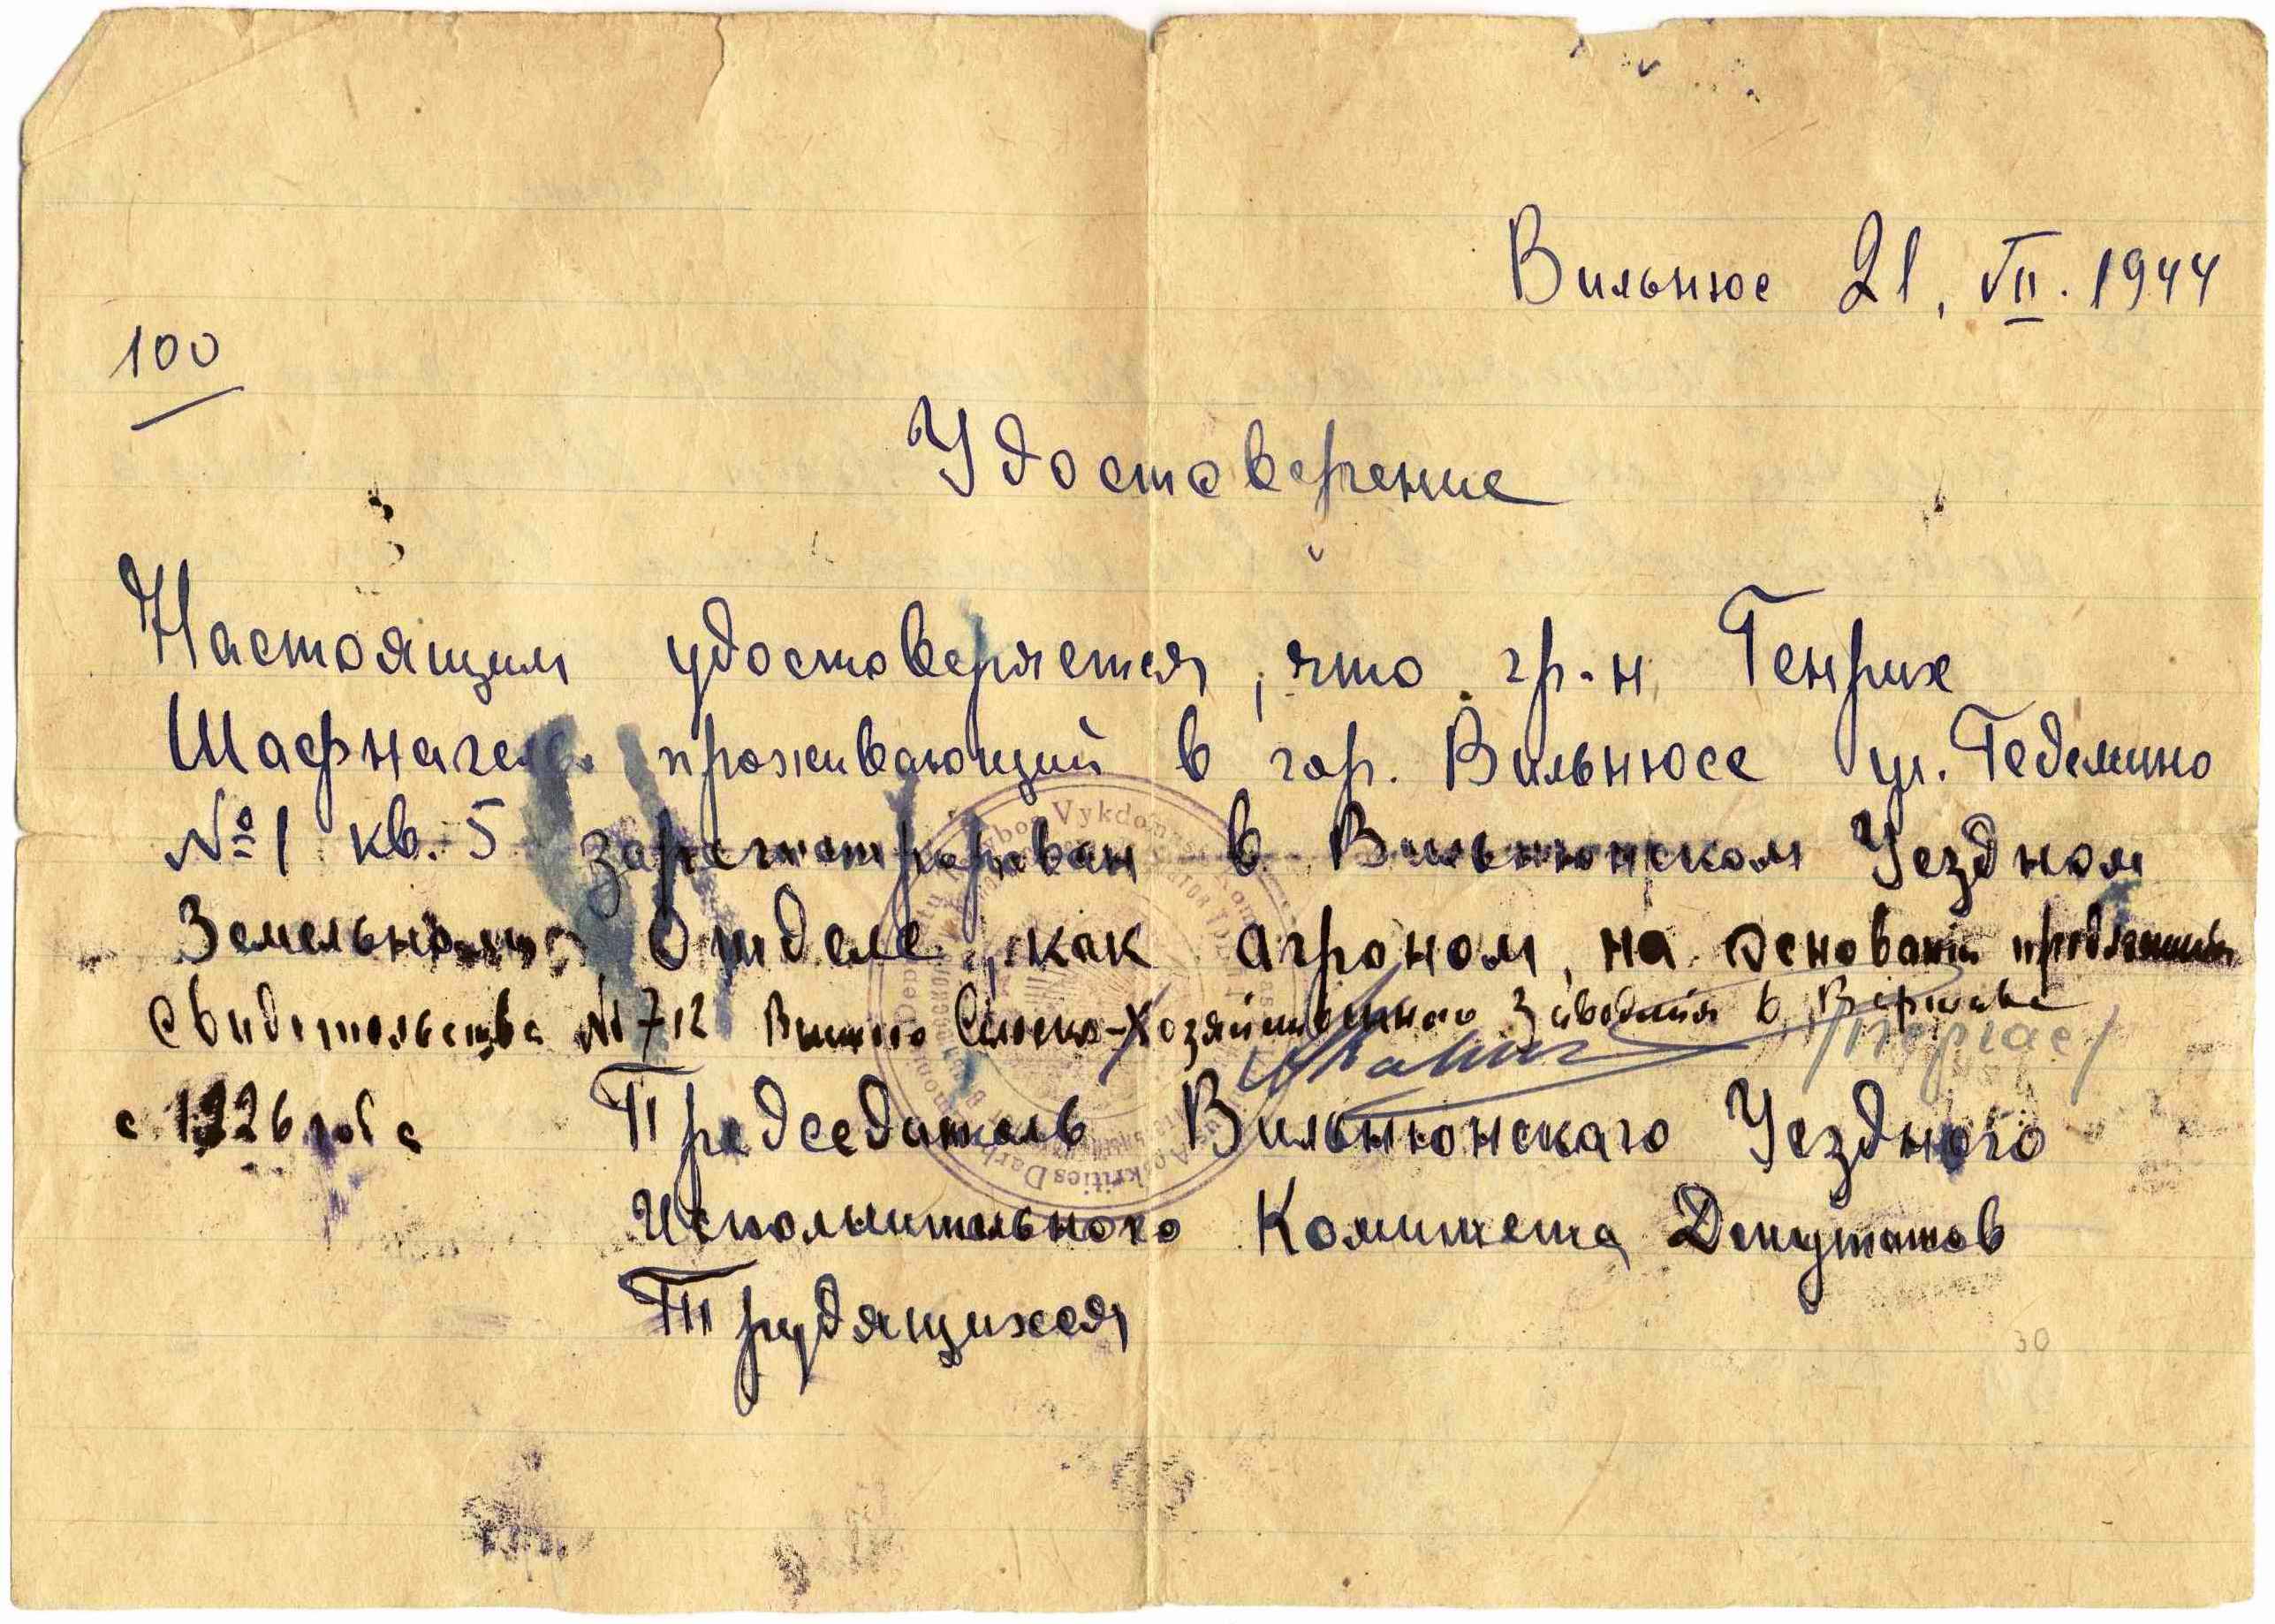 Вильнюс 21, VII. 1944
100
Удостоверение
Настоящим удостоверяется, что гр-н Генрих
Шафнагель проживающий в гор. Вильнюсе ул. Гедемино
№ 1 кв. 5 зарегистрирован в Вильнюнском Уездном
Земельном Отделе, как агроном, на основании
Свидетельства № 712 Высшего Сельско-Хозяйственного Заведения в Варшаве
с 1926 года Председатель Вильнюнскаго Уездного
Исполнительного Комитета Депутатов
Трудящихся
30